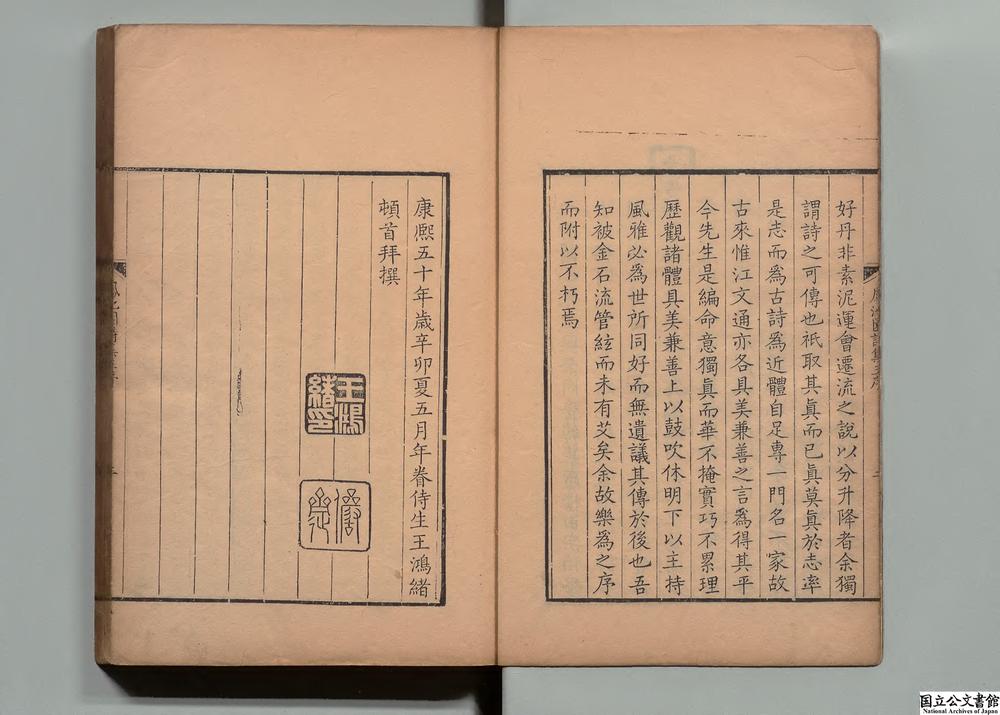 好丹非素泥運會遷流之說以分升降者余獨
謂詩之可傳也祇取其眞而已眞莫眞於志率
是志而爲古詩爲近體自足專一門名一家故
古來惟江文通亦各具美兼善之言爲得其平
今先生是編命意獨眞而華不掩實巧不累理
歷觀諸體具美兼善上以鼓吹休明下以主持
風雅必爲世所同好而無遺議其傳於後也吾
知被金石流管絃而未有艾矣余故樂爲之序
而附以不朽焉
康熙五十年歲辛卯夏五月年眷侍生王鴻緒
頓首拜撰
王鴻緒印
儼齋
国立公文書館
National Archives of Japan